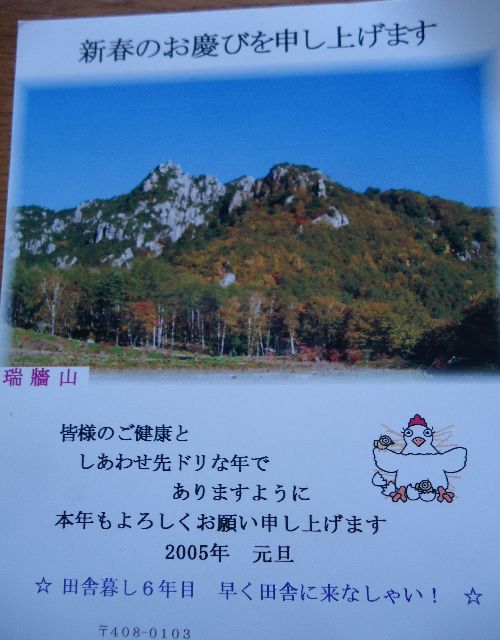 新春のお慶びを申し上げます
瑞牆山
皆様のご健康と
しあわせ先ドリな年で
ありますように
本年もよろしくお願い申し上げます
2005年 元旦
☆ 田舎暮し6年目 早く田舎に来なしゃい! ☆
〒408-0103